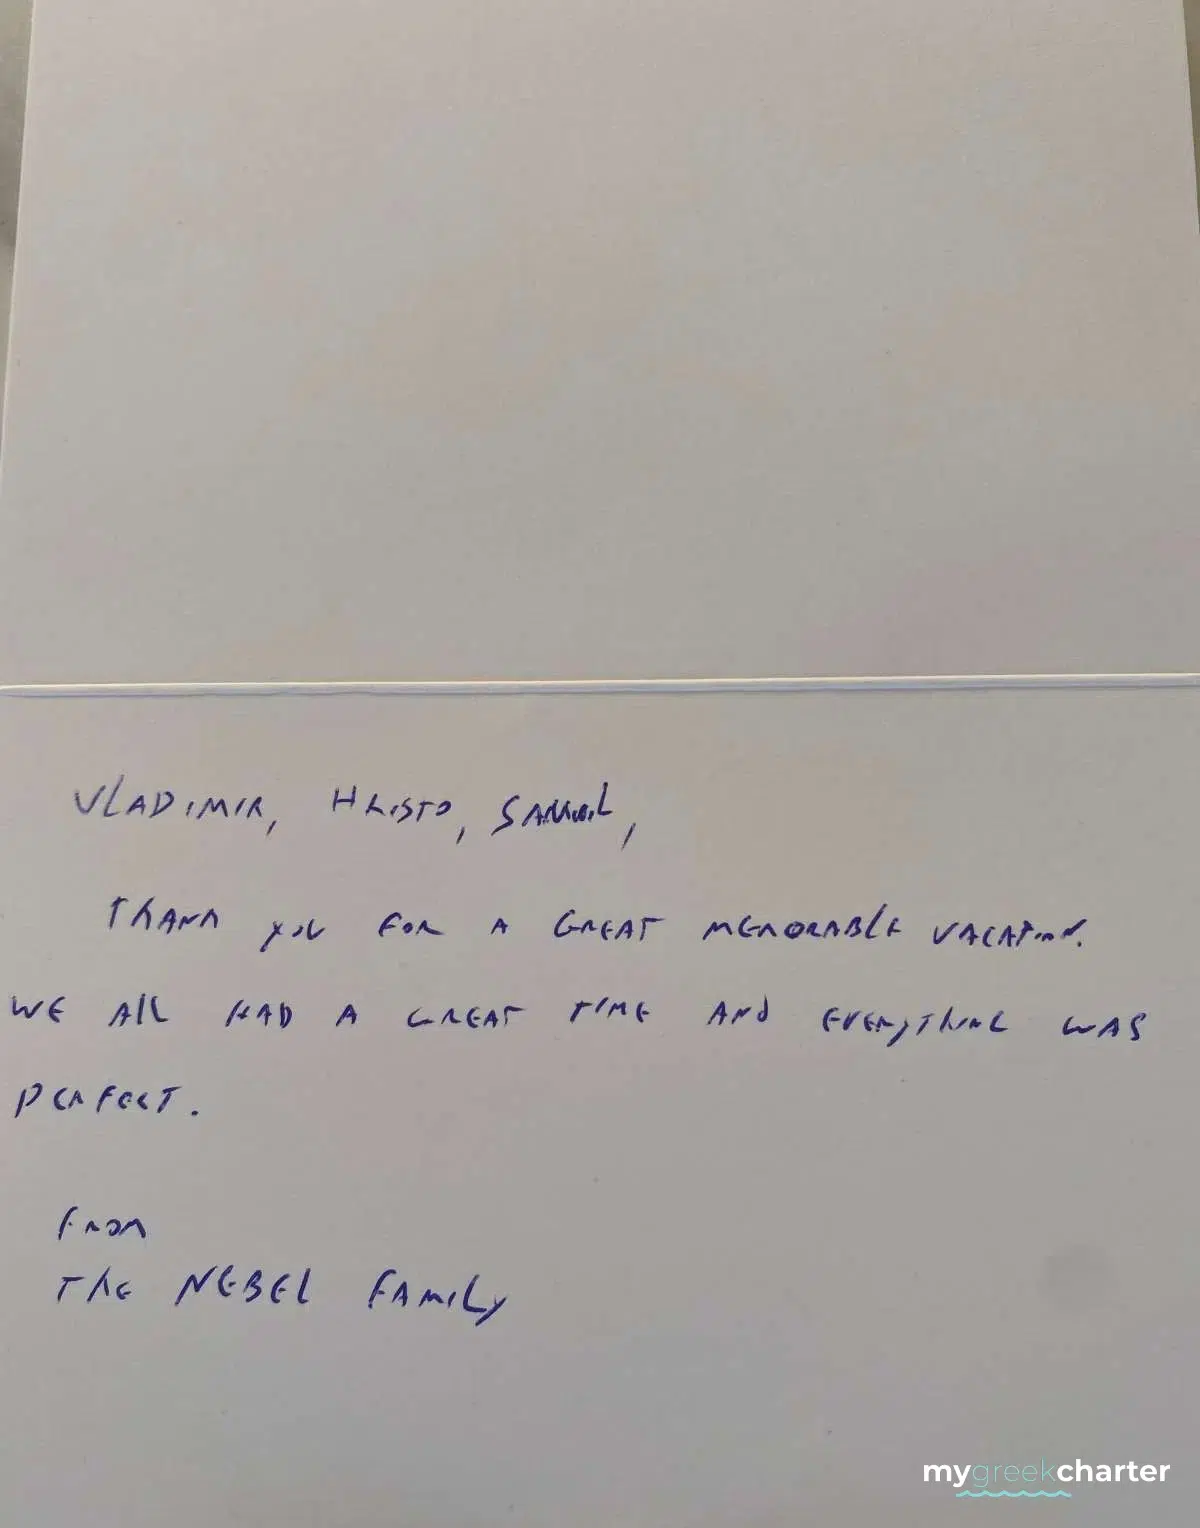 VLADIMIR, HRISTO, SAMUIL,
THANK YOU FOR A GREAT MEMORABLE VACATION.
WE All HAD A GREAT TIME AND EVERYTHING WAS
PERFECT.
FROM
THE NEBEL FAMILY
mygreekcharter